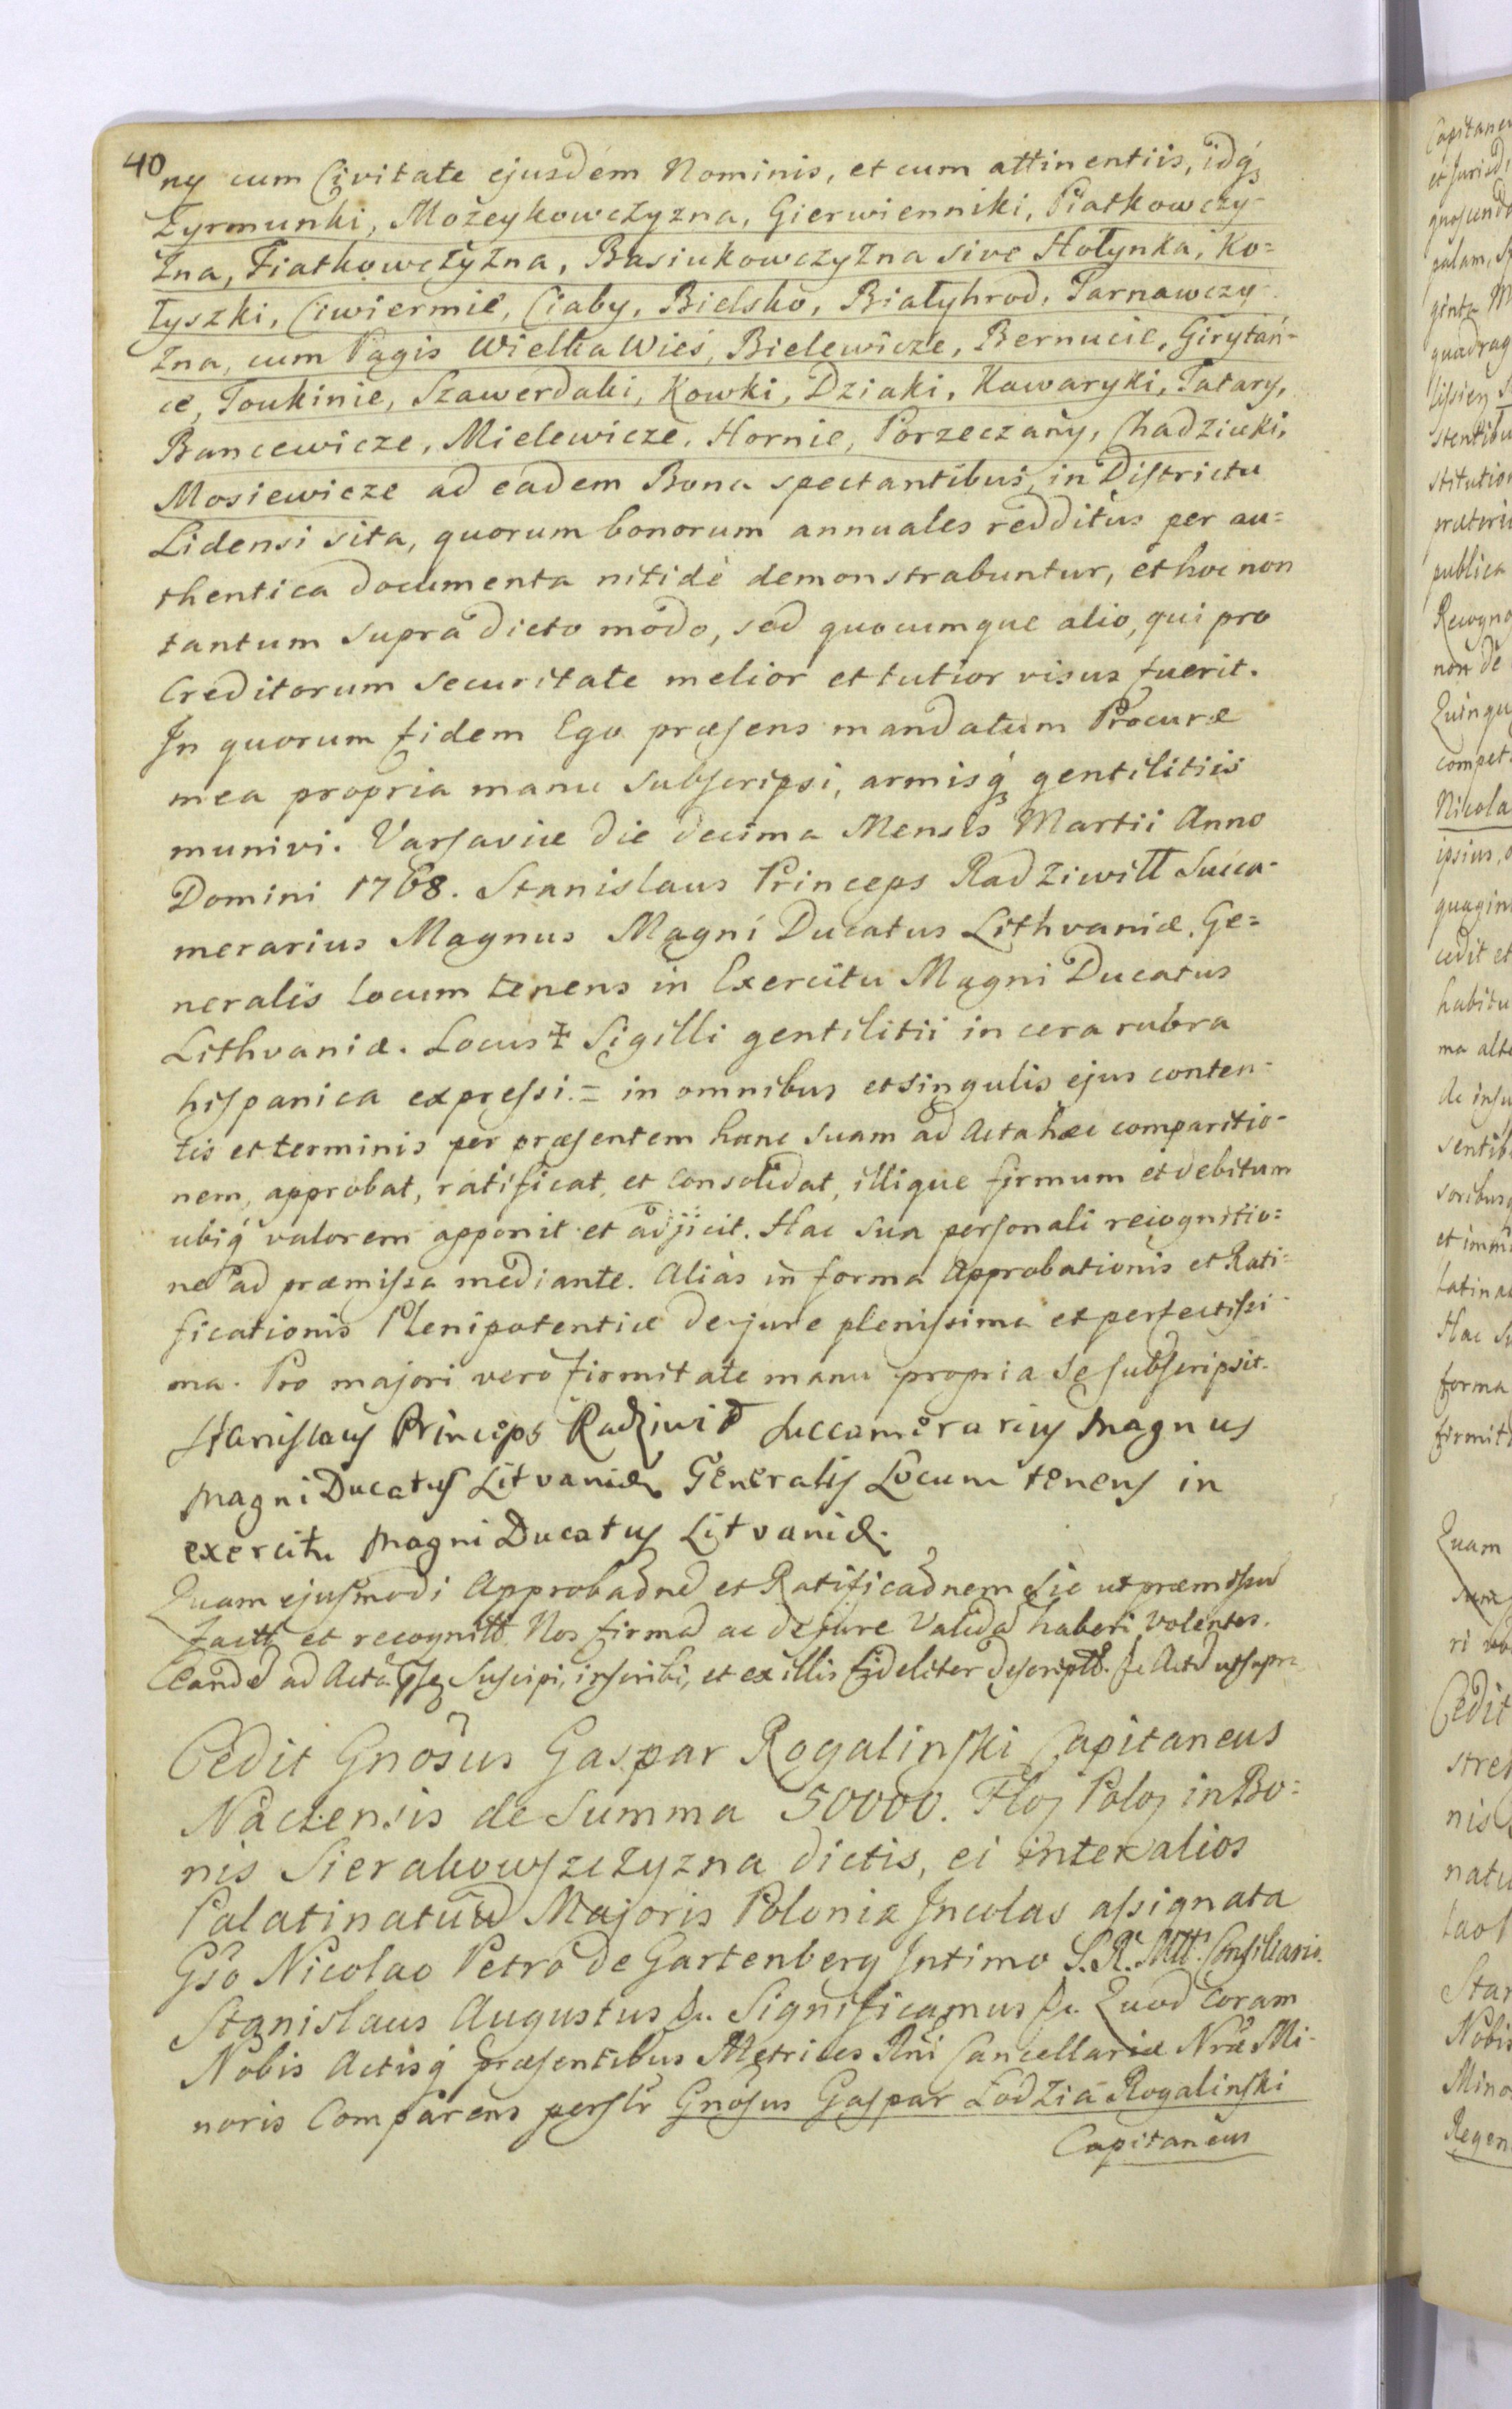 40
ny cum Civitate ejusdem Nominis, et cum attinentiis, idq3
Zyrmunki, Możeykowczyzna, Gierwienniki, Piatkowczy-
zna, Fiatkowczyzna, Basiukowczyzna sive Hołynka, Ko=
łyszki, Ciwiermie, Ciaby, Bielsko, Białyhrod, Tarnawczy-
zna, cum Pagis Wielka Wieś, Bielewicze, Bernucie, Girytań-
ce, Toukinie, Szawerdaki, Kowki, Dziaki, Kawaryki, Tatary,
Bancewicze, Mielewicze, Hornie, Porzeczany, Chadziuki,
Mosiewicze ad eadem Bona spectantibus, in Districtu
Lidensi sita, quorum bonorum annuales redditus per au=
thentica documenta nitidè demonstrabuntur, et hoc non
tantum supra dicto modo, sed quocumque alio, qui pro
Creditorum securitate melior et tutior visus fuerit.
In quorum fidem Ego præsens mandatum Procuræ
mea propria manu subscripsi, armisq3 gentilitiis
munivi. Varsaviæ die decima Mensis Martii Anno
Domini 1768. Stanislaus Princeps Radziwiłł Succa-
merarius Magnus Magni Ducatus Lithvaniæ. Ge=
neralis locum tenens in Exercitu Magni Ducatus
Lithvaniæ. Locus ‡ Sigilli gentilitii in cera rubra
hispanica expressi. = in omnibus et singulis ejus conten-
tis et terminis per præsentem hanc suam ad Acta hæc comparitio-
nem, approbat, ratificat, et consolidat, illique firmum et debitum
ubiq3 valorem apponit et adjicit. Hac sua personali recognitio=
ne ad præmissa mediante. Aliàs in forma Approbationis et Rati=
ficationis Plenipotentiæ de jure plenissima et perfectissi-
ma. Pro majori vero firmitate manu propria se subscripsit.
Stanislaus Princeps Radziwił Succamerarius Magnus
Magni Ducatus Litvaniæ Generalis Locum tenens in
exercitu Magni Ducatus Litvaniæ.
Quam ejusmodi Approbaõnẽ et Ratificaõnem sic ut præmissũ
factã et recognitã. Nos firmã ac de jure validã haberi volentes.
Eandẽ ad Acta suscipi, inscribi, et ex illis fideliter descriptã. Actũ ut supra
Cedit Gnosus Gaspar Rogalinski Capitaneus
Naclensis de Summa 50000. Flor Polor in Bo=
nis Sierakowszczyzna dictis, ei inter alios
Palatinatuũ Majoris Poloniæ Incolas assignata
Gso Nicolao Petro de Gartenberg Intimo S. R. Mtt. Consiliario.
Stanislaus Augustus &c. Significamus &c. Quod coram
Nobis Actisq3 præsentibus Metrices Rni Cancellariæ Nræ Mi-
noris Comparens persłr Gnosus Gaspar Łodzia Rogalinski
Capitaneus